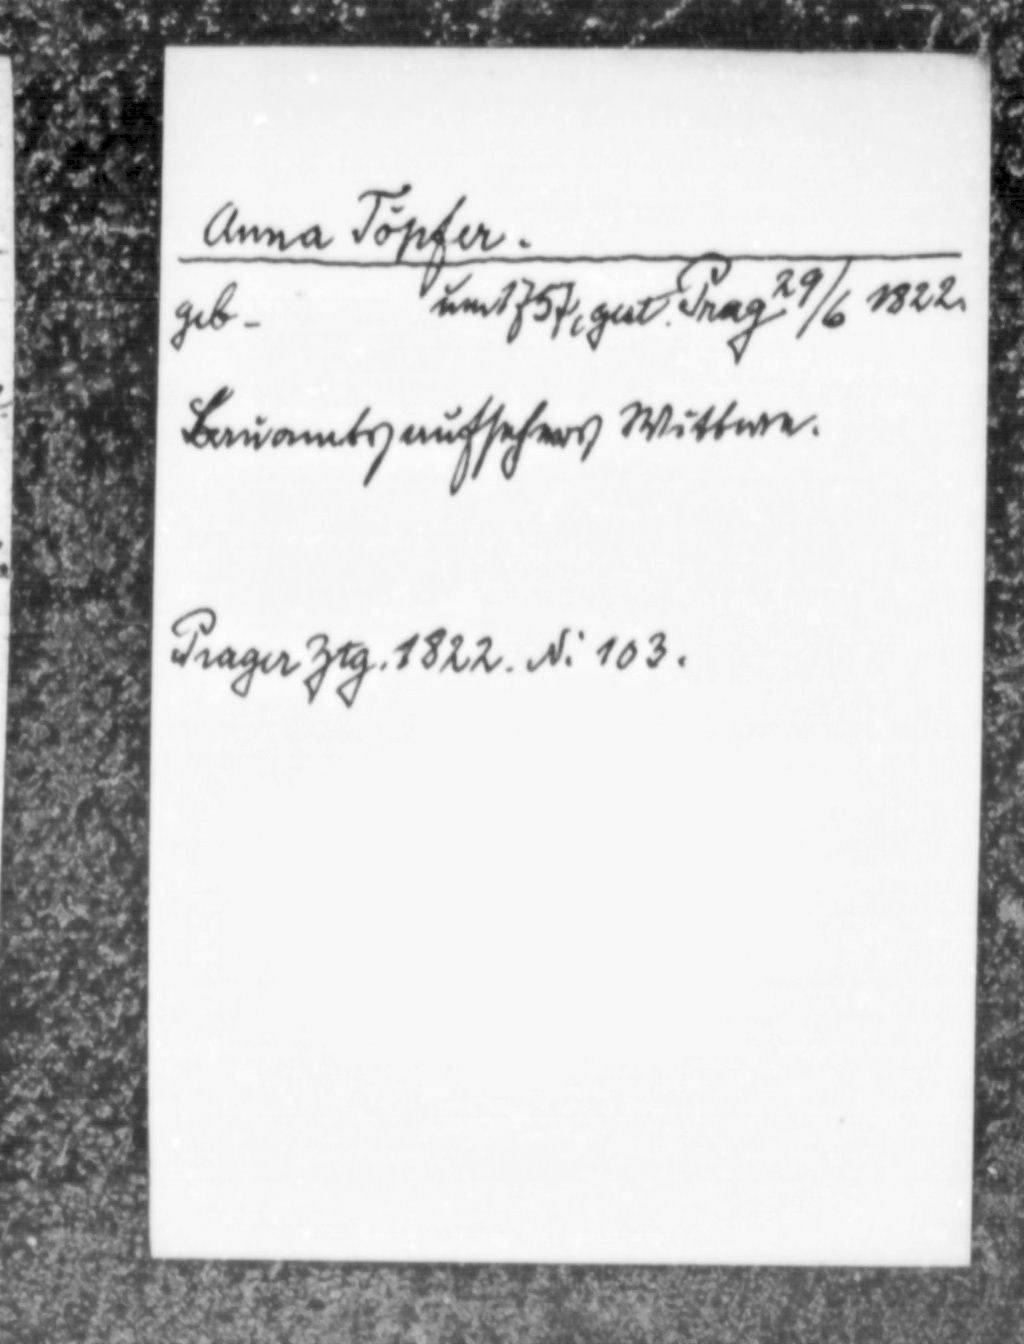 Anna Töpfer.
geb- um 1757, gest. Prag 29/6 1822.
Bauamtsaufsehers Wittwe.
Prager Ztg. 1822. N: 103.